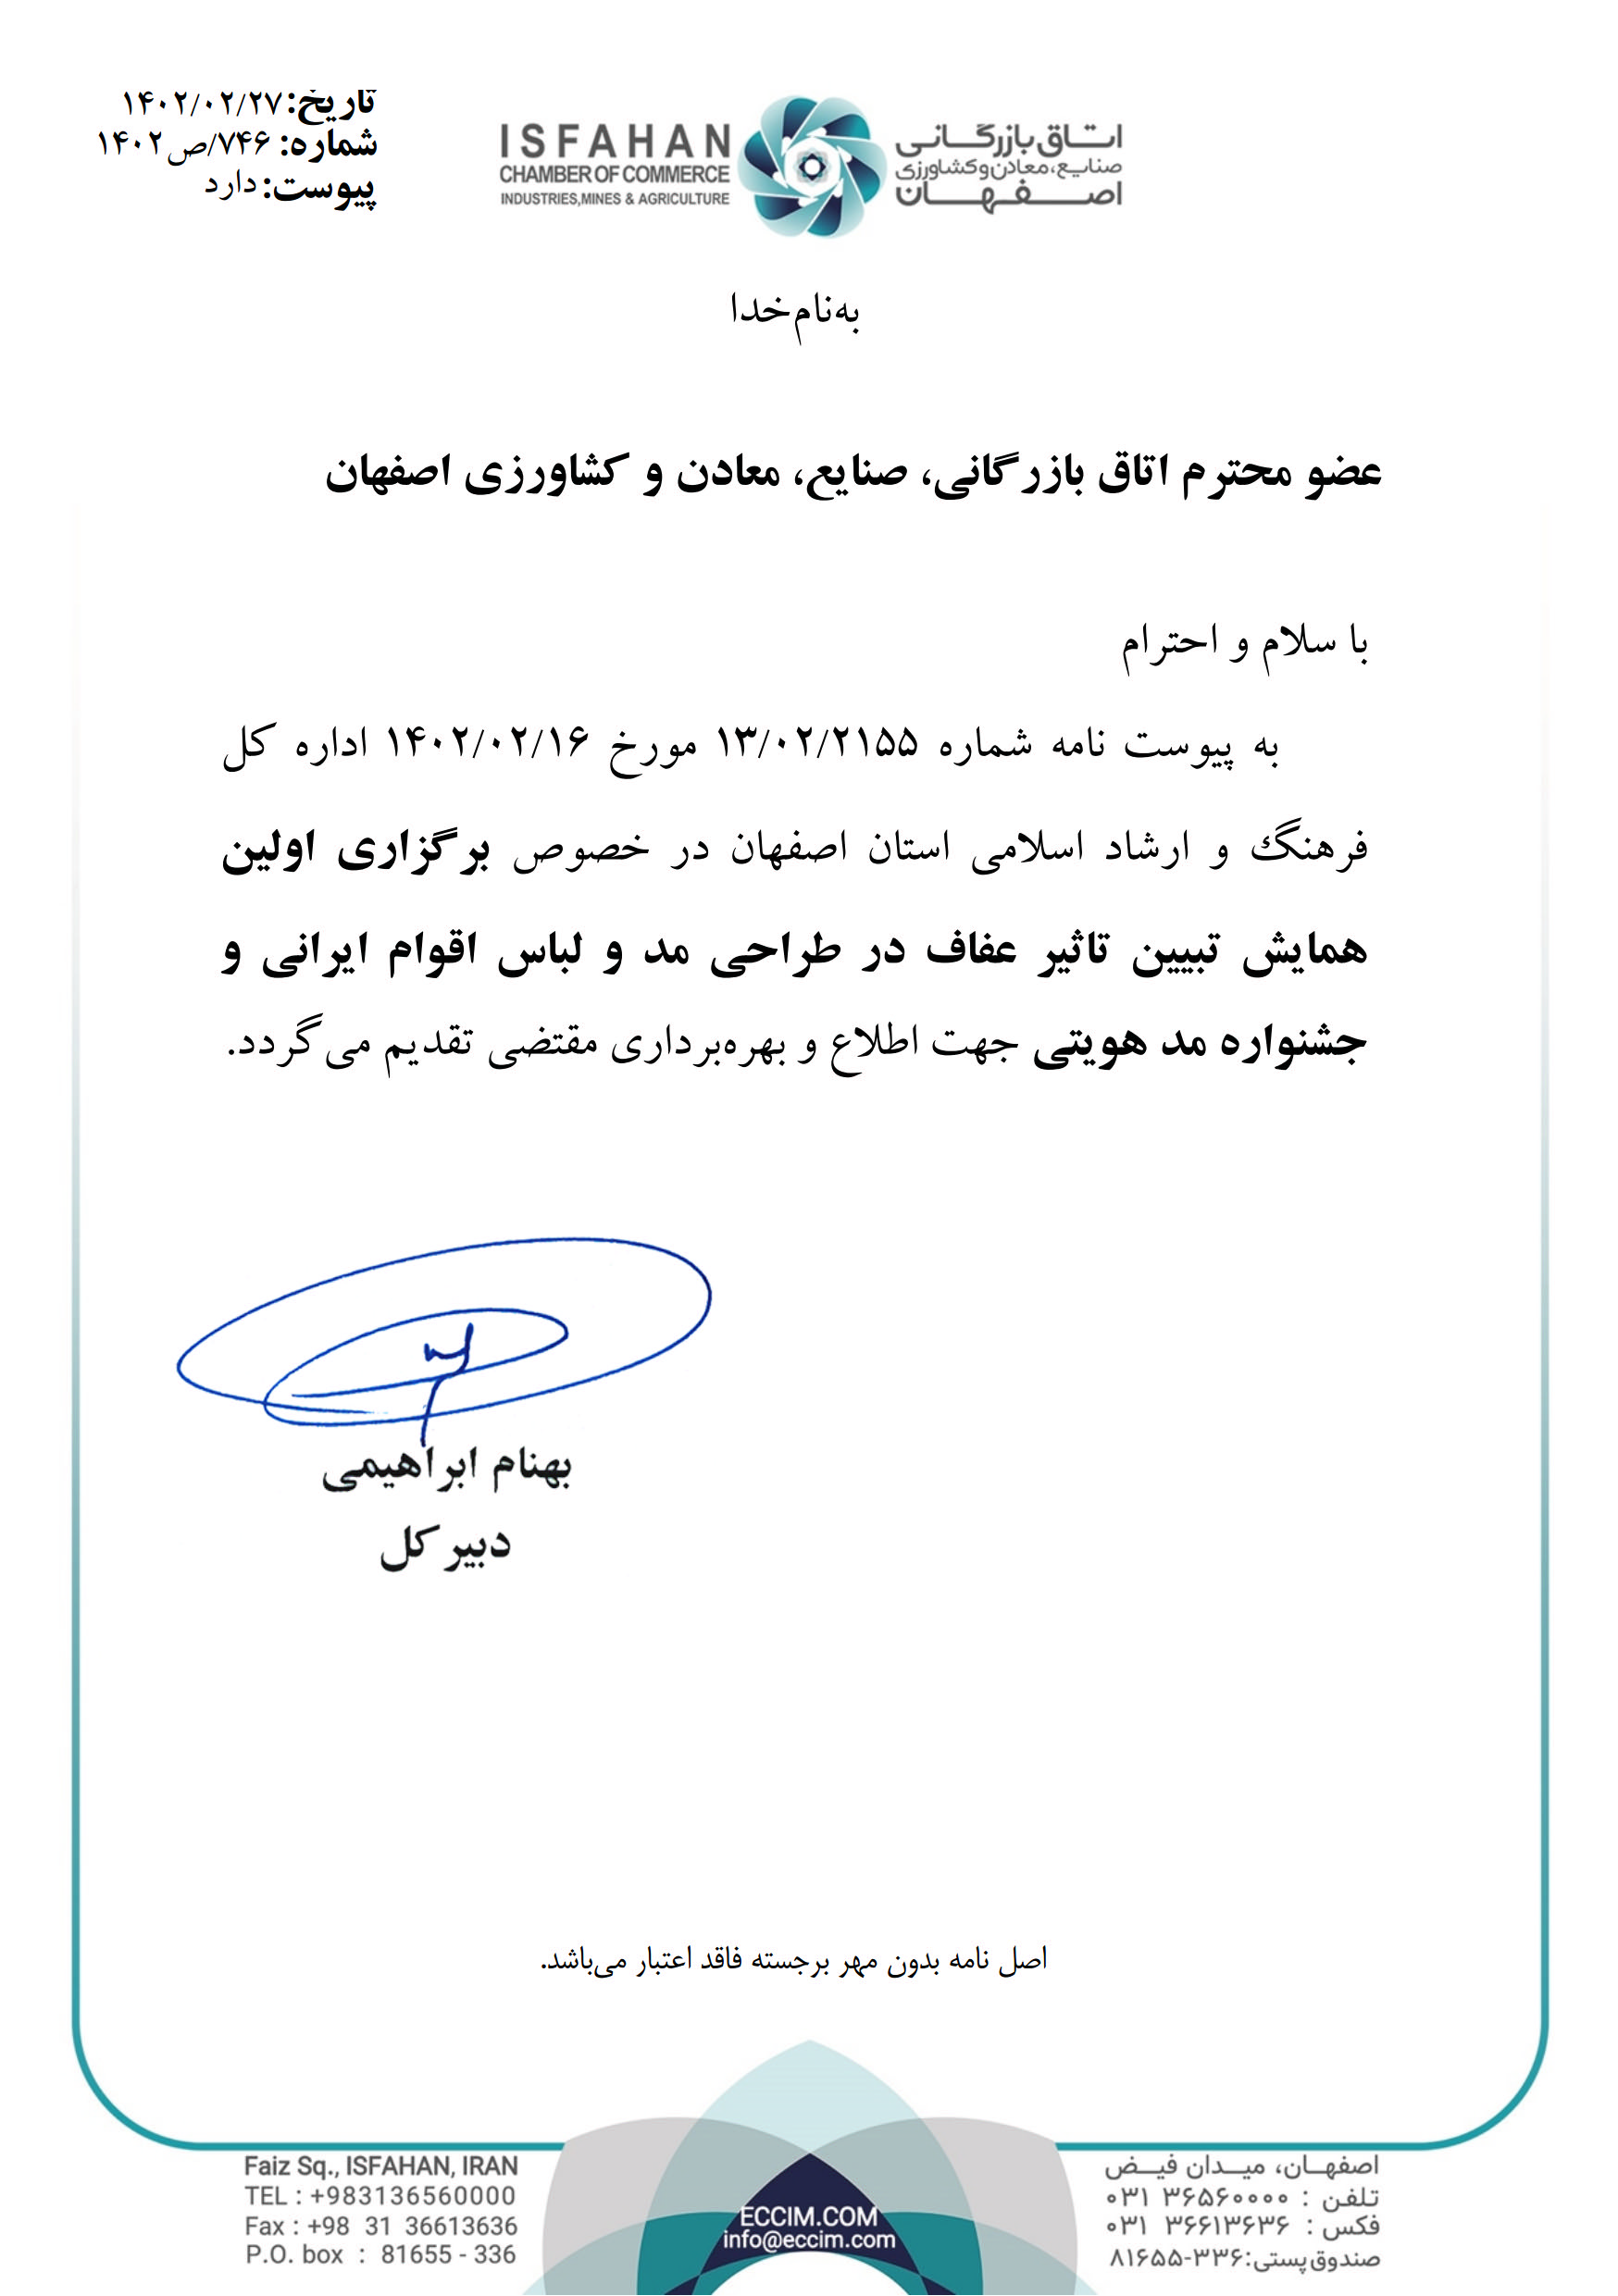 تاریخ: ۱۴۰۲/۰۲/۲۷
شماره: ۷۴۶/ص۱۴۰۲
پیوست: دارد
ISFAHAN
CHAMBER OF COMMERCE
INDUSTRIES,MINES & AGRICULTURE
اتاق بازرگانی
صنایع، معادن و کشاورزی
اصفهان
به‌نام‌خدا
عضو محترم اتاق بازرگانی، صنایع، معادن و کشاورزی اصفهان
با سلام و احترام
به پیوست نامه شماره ۱۳/۰۲/۲۱۵۵ مورخ ۱۴۰۲/۰۲/۱۶ اداره کل
فرهنگ و ارشاد اسلامی استان اصفهان در خصوص برگزاری اولین
همایش تبیین تاثیر عفاف در طراحی مد و لباس اقوام ایرانی و
جشنواره مد هویتی جهت اطلاع و بهره‌برداری مقتضی تقدیم می‌گردد.
بهنام ابراهیمی
دبیرکل
اصل نامه بدون مهر برجسته فاقد اعتبار می‌باشد.
Faiz Sq., ISFAHAN, IRAN
TEL : +983136560000
Fax : +98 31 36613636
P.O. box : 81655 - 336
ECCIM.COM
info@eccim.com
اصفهان، میدان فیض
تلفن : ۳۶۵۶۰۰۰۰ ۰۳۱
فکس : ۳۶۶۱۳۶۳۶ ۰۳۱
صندوق پستی: ۳۳۶-۸۱۶۵۵